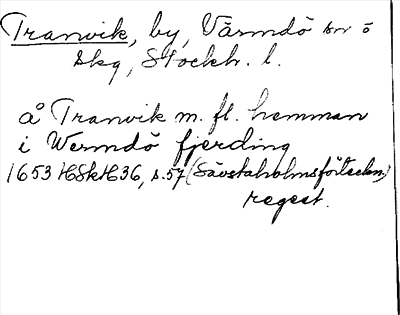 Tranvik, by, Värmdö sn o
skg, Stockh. l.
å Tranvik m. fl. hemman
i Wermdö fjerding
1653 HSkH36, s.57 (Sävstaholmsförteckn.)
regest.